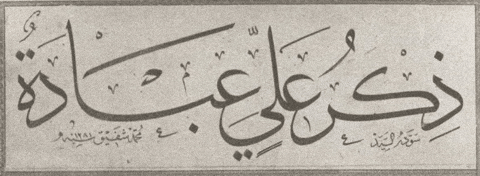 ذِكْرُ عَلِيٍّ عِبَادَةٌ
سوّده السيّد محمد شفيق سنه ١٢٨٠